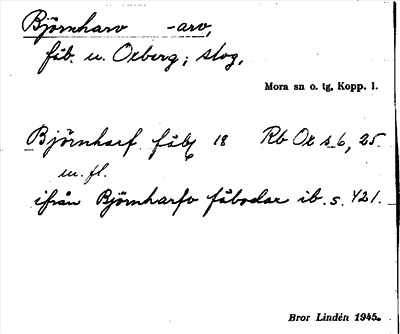 Björnharv -arv,
fäb. u. Oxberg; skog,
Mora sn o. tg, Kopp. l.
Björnharf fäb 18 Rb Ox s 6, 25
m. fl.
ifrån Björnharfv fäbodar ib. s. 421.
Bror Lindén 1945.